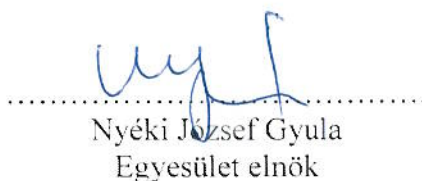 Nyéki József Gyula
Egyesület elnök